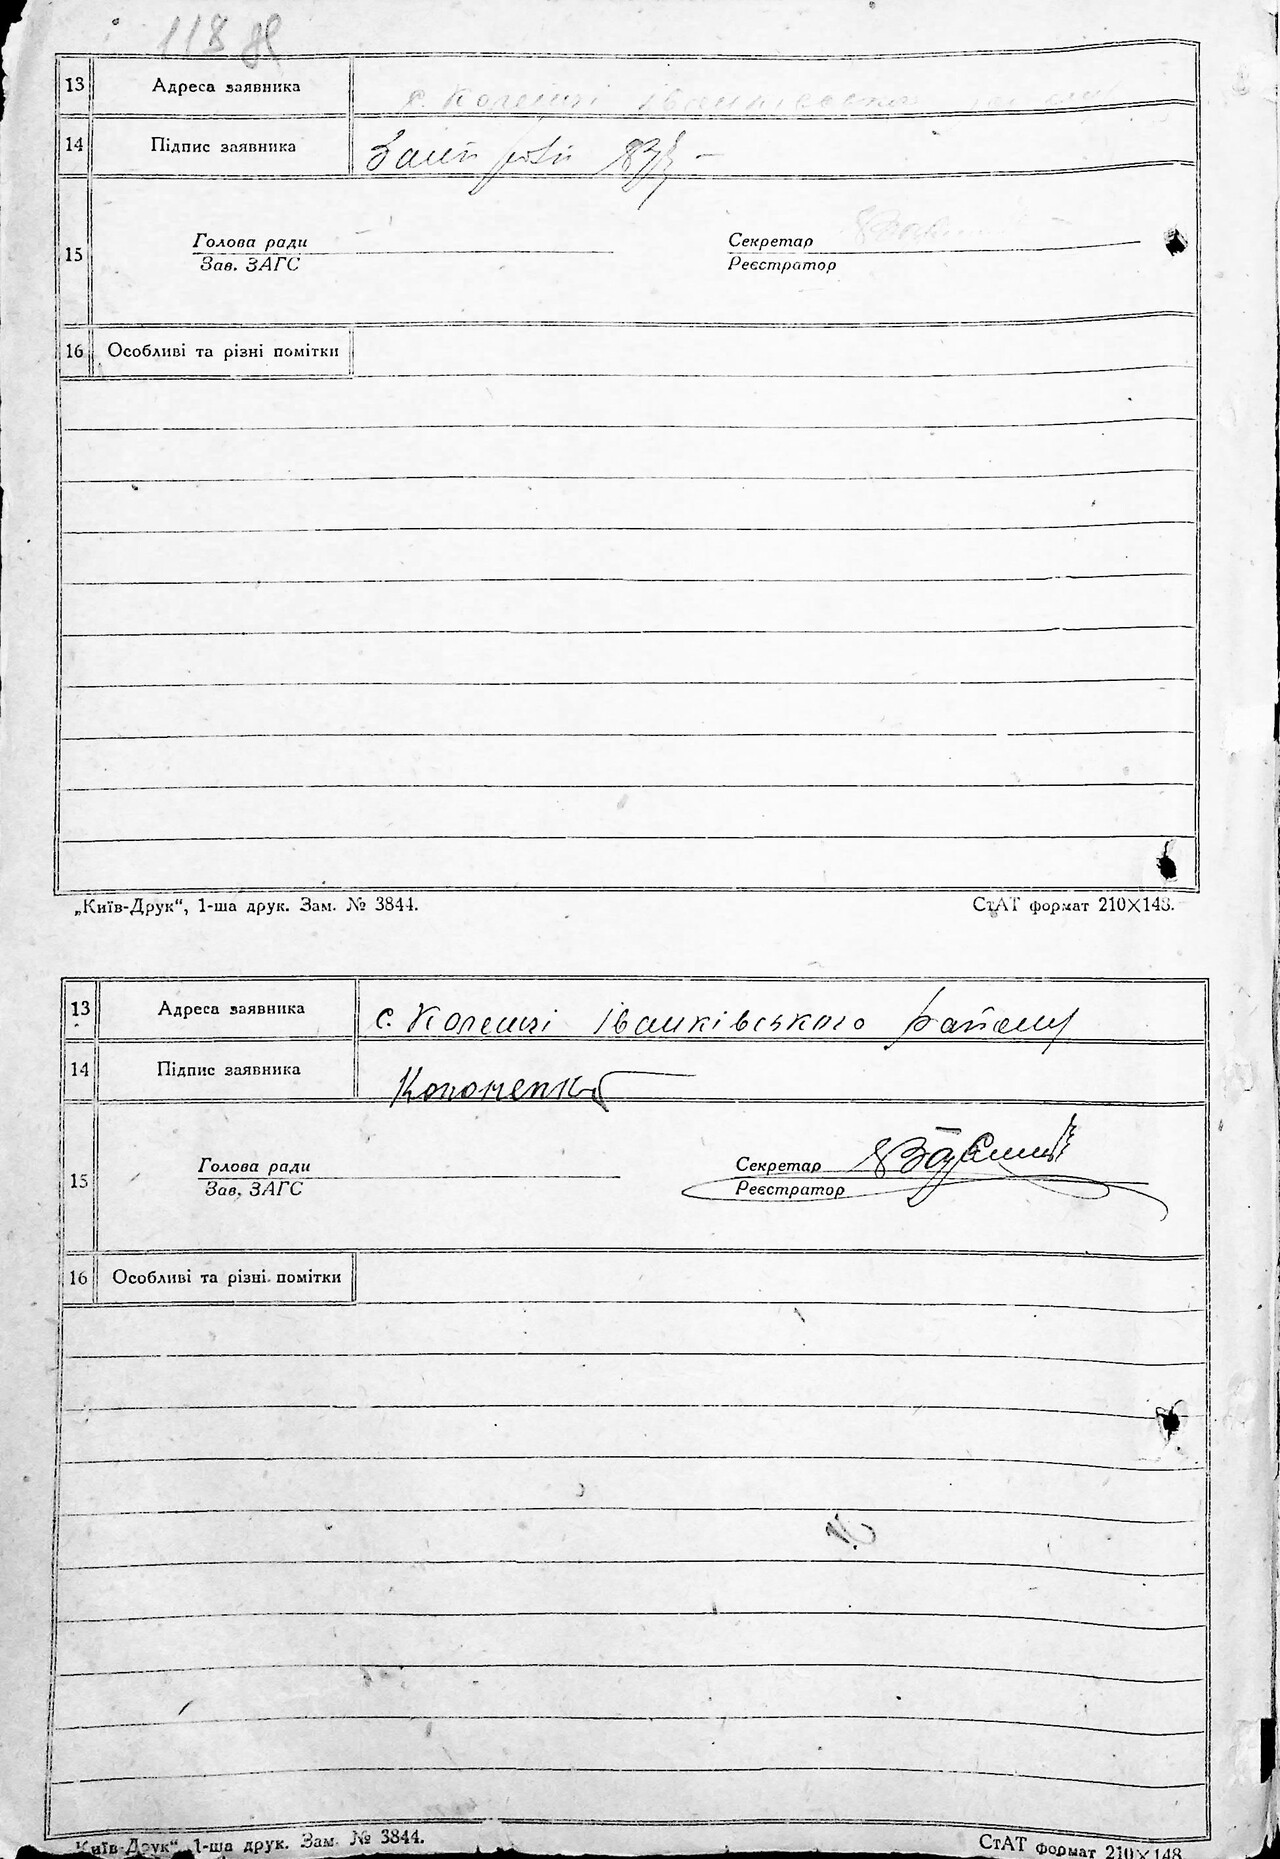 118
13 Адреса заявника с. Коленці Іванківського
14 Підпис заявника
15 Голова ради Секретар
Зав. ЗАГС Реєстратор
16 Особливі та різні помітки
„Київ-Друк“, 1-ша друк. Зам. № 3844. СтАТ формат 210×148.
13 Адреса заявника с. Коленці Іванківського району
14 Підпис заявника Кононенко
15 Голова ради Секретар
Зав. ЗАГС Реєстратор
16 Особливі та різні помітки
„Київ-Друк“, 1-ша друк. Зам. № 3844. СтАТ формат 210×148